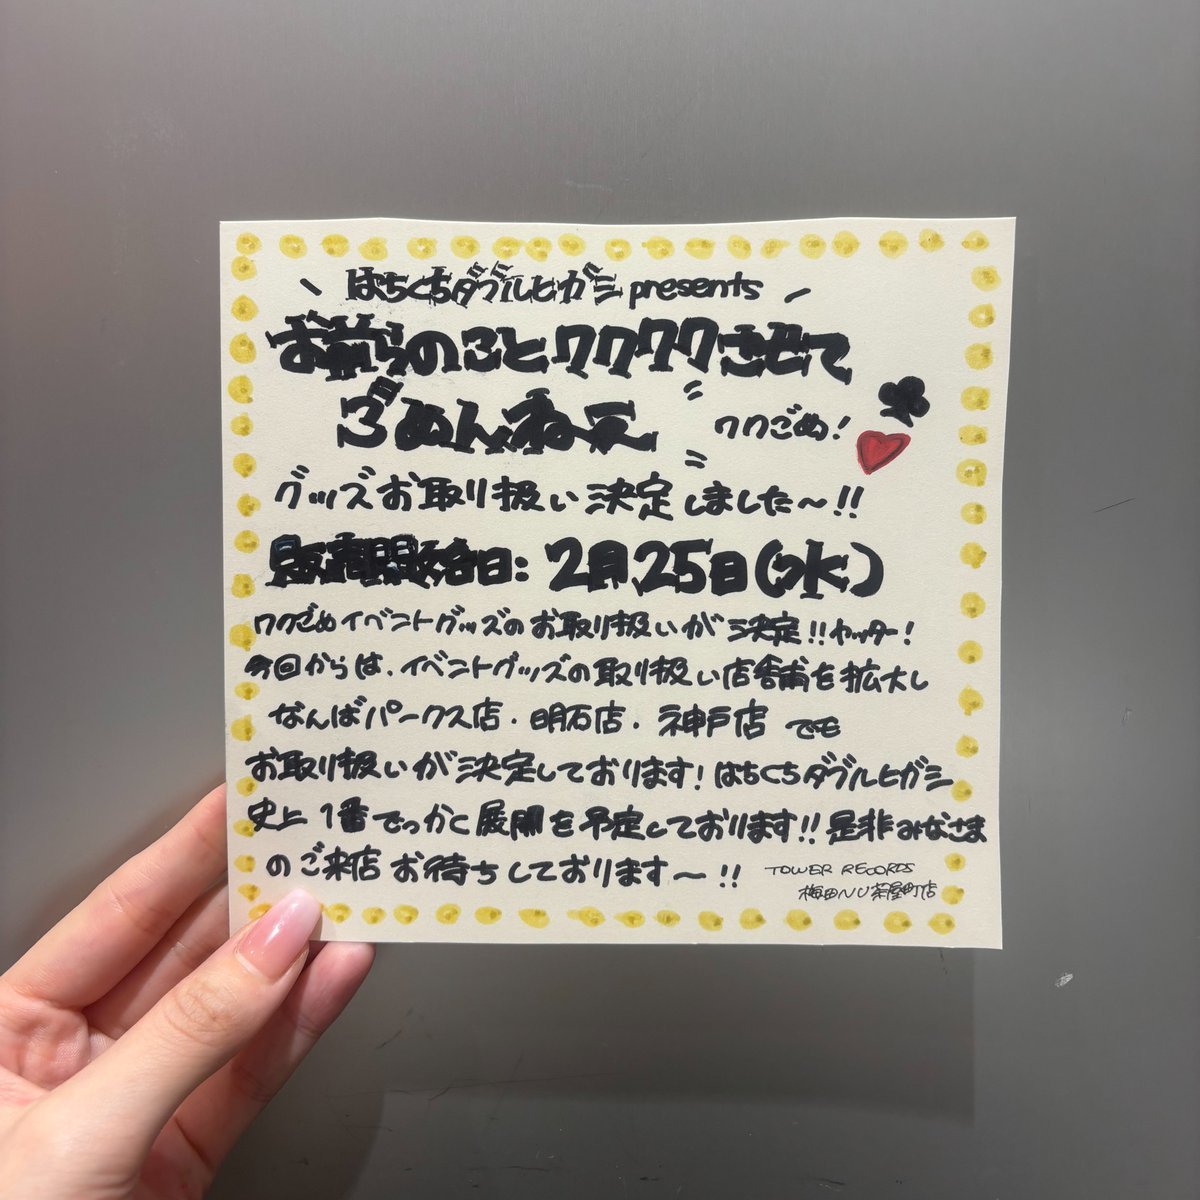 \ はちくちダブルヒガシ presents /
お前らのことワクワクさせて
ごめんねえ
ワクごめ!
グッズお取り扱い決定しました〜!!
販売開始日:2月25日(水)
ワクごめイベントグッズのお取り扱いが決定!!ヤッター!
今回からは、イベントグッズの取り扱い店舗を拡大し
なんばパークス店・明石店・神戸店 でも
お取り扱いが決定しております!はちくちダブルヒガシ
史上1番でっかく展開を予定しております!!是非みなさま
のご来店お待ちしております〜!!
TOWER RECORDS
梅田NU茶屋町店